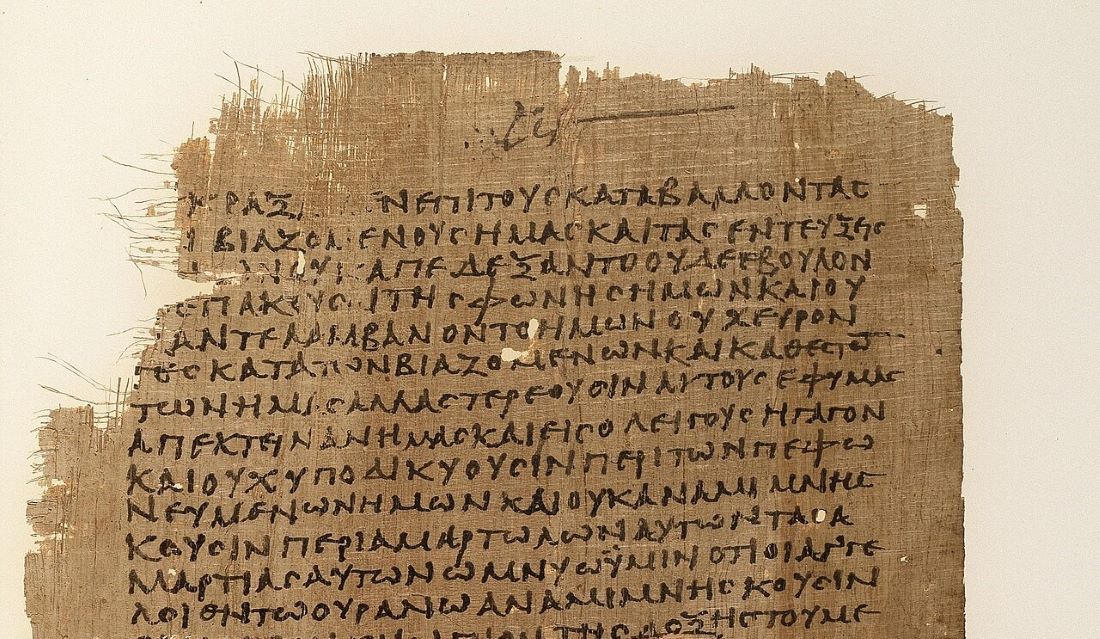 ΚΡΑΞ ΕΝ ΕΠΙ ΤΟΥΣ ΚΑΤΑΒΑΛΛΟΝΤΑΣ
Ι ΒΙΑΖΟΜΕΝΟΥΣ ΗΜΑΣ ΚΑΙ ΤΑΣ ΕΝΤΕΥΞΕΙΣ
ΑΠΕΔΕΞΑΝΤΟ ΟΥΔΕ ΕΒΟΥΛΟΝ
ΕΠΑΚΟΥΣΑΙ ΤΗΣ ΦΩΝΗΣ ΗΜΩΝ ΚΑΙ ΟΥ
ΑΝΤΕΛΑΜΒΑΝΟΝΤΟ ΗΜΩΝ ΟΥΧ ΕΥΡΟΝ
ΤΕΣ ΚΑΤΑ ΤΩΝ ΒΙΑΖΟΜΕΝΩΝ ΚΑΙ ΚΑΘΕΣΤΩ
ΤΩΝ ΗΜΑΣ ΑΛΛΑ ΣΤΕΡΕΟΥΣΙΝ ΑΥΤΟΥΣ ΕΦ ΥΜΑΣ
ΑΠΕΚΤΕΙΝΑΝ ΗΜΑΣ ΚΑΙ ΕΙΣ ΟΛΕΙΓΟΥΣ ΗΓΑΓΟΝ
ΚΑΙ ΟΥΧ ΥΠΟΔΙΚΥΟΥΣΙΝ ΠΕΡΙ ΤΩΝ ΠΕΦΩ
ΝΕΥΜΕΝΩΝ ΗΜΩΝ ΚΑΙ ΟΥΚ ΑΝΑΜΙΜΝΗΣ
ΚΟΥΣΙΝ ΠΕΡΙ ΑΜΑΡΤΩΛΩΝ ΑΥΤΩΝ ΤΑΣ Α
ΜΑΡΤΙΑΣ ΑΥΤΩΝ ΩΜΝΥΩ ΫΜΙΝ ΟΤΙ ΟΙ ΑΓΓΕ
ΛΟΙ ΕΝ ΤΩ ΟΥΡΑΝΩ ΑΝΑΜΙΜΝΗΣΚΟΥΣΙΝ
ΤΗΣ ΔΟΞΗΣ ΤΟΥ ΜΕ